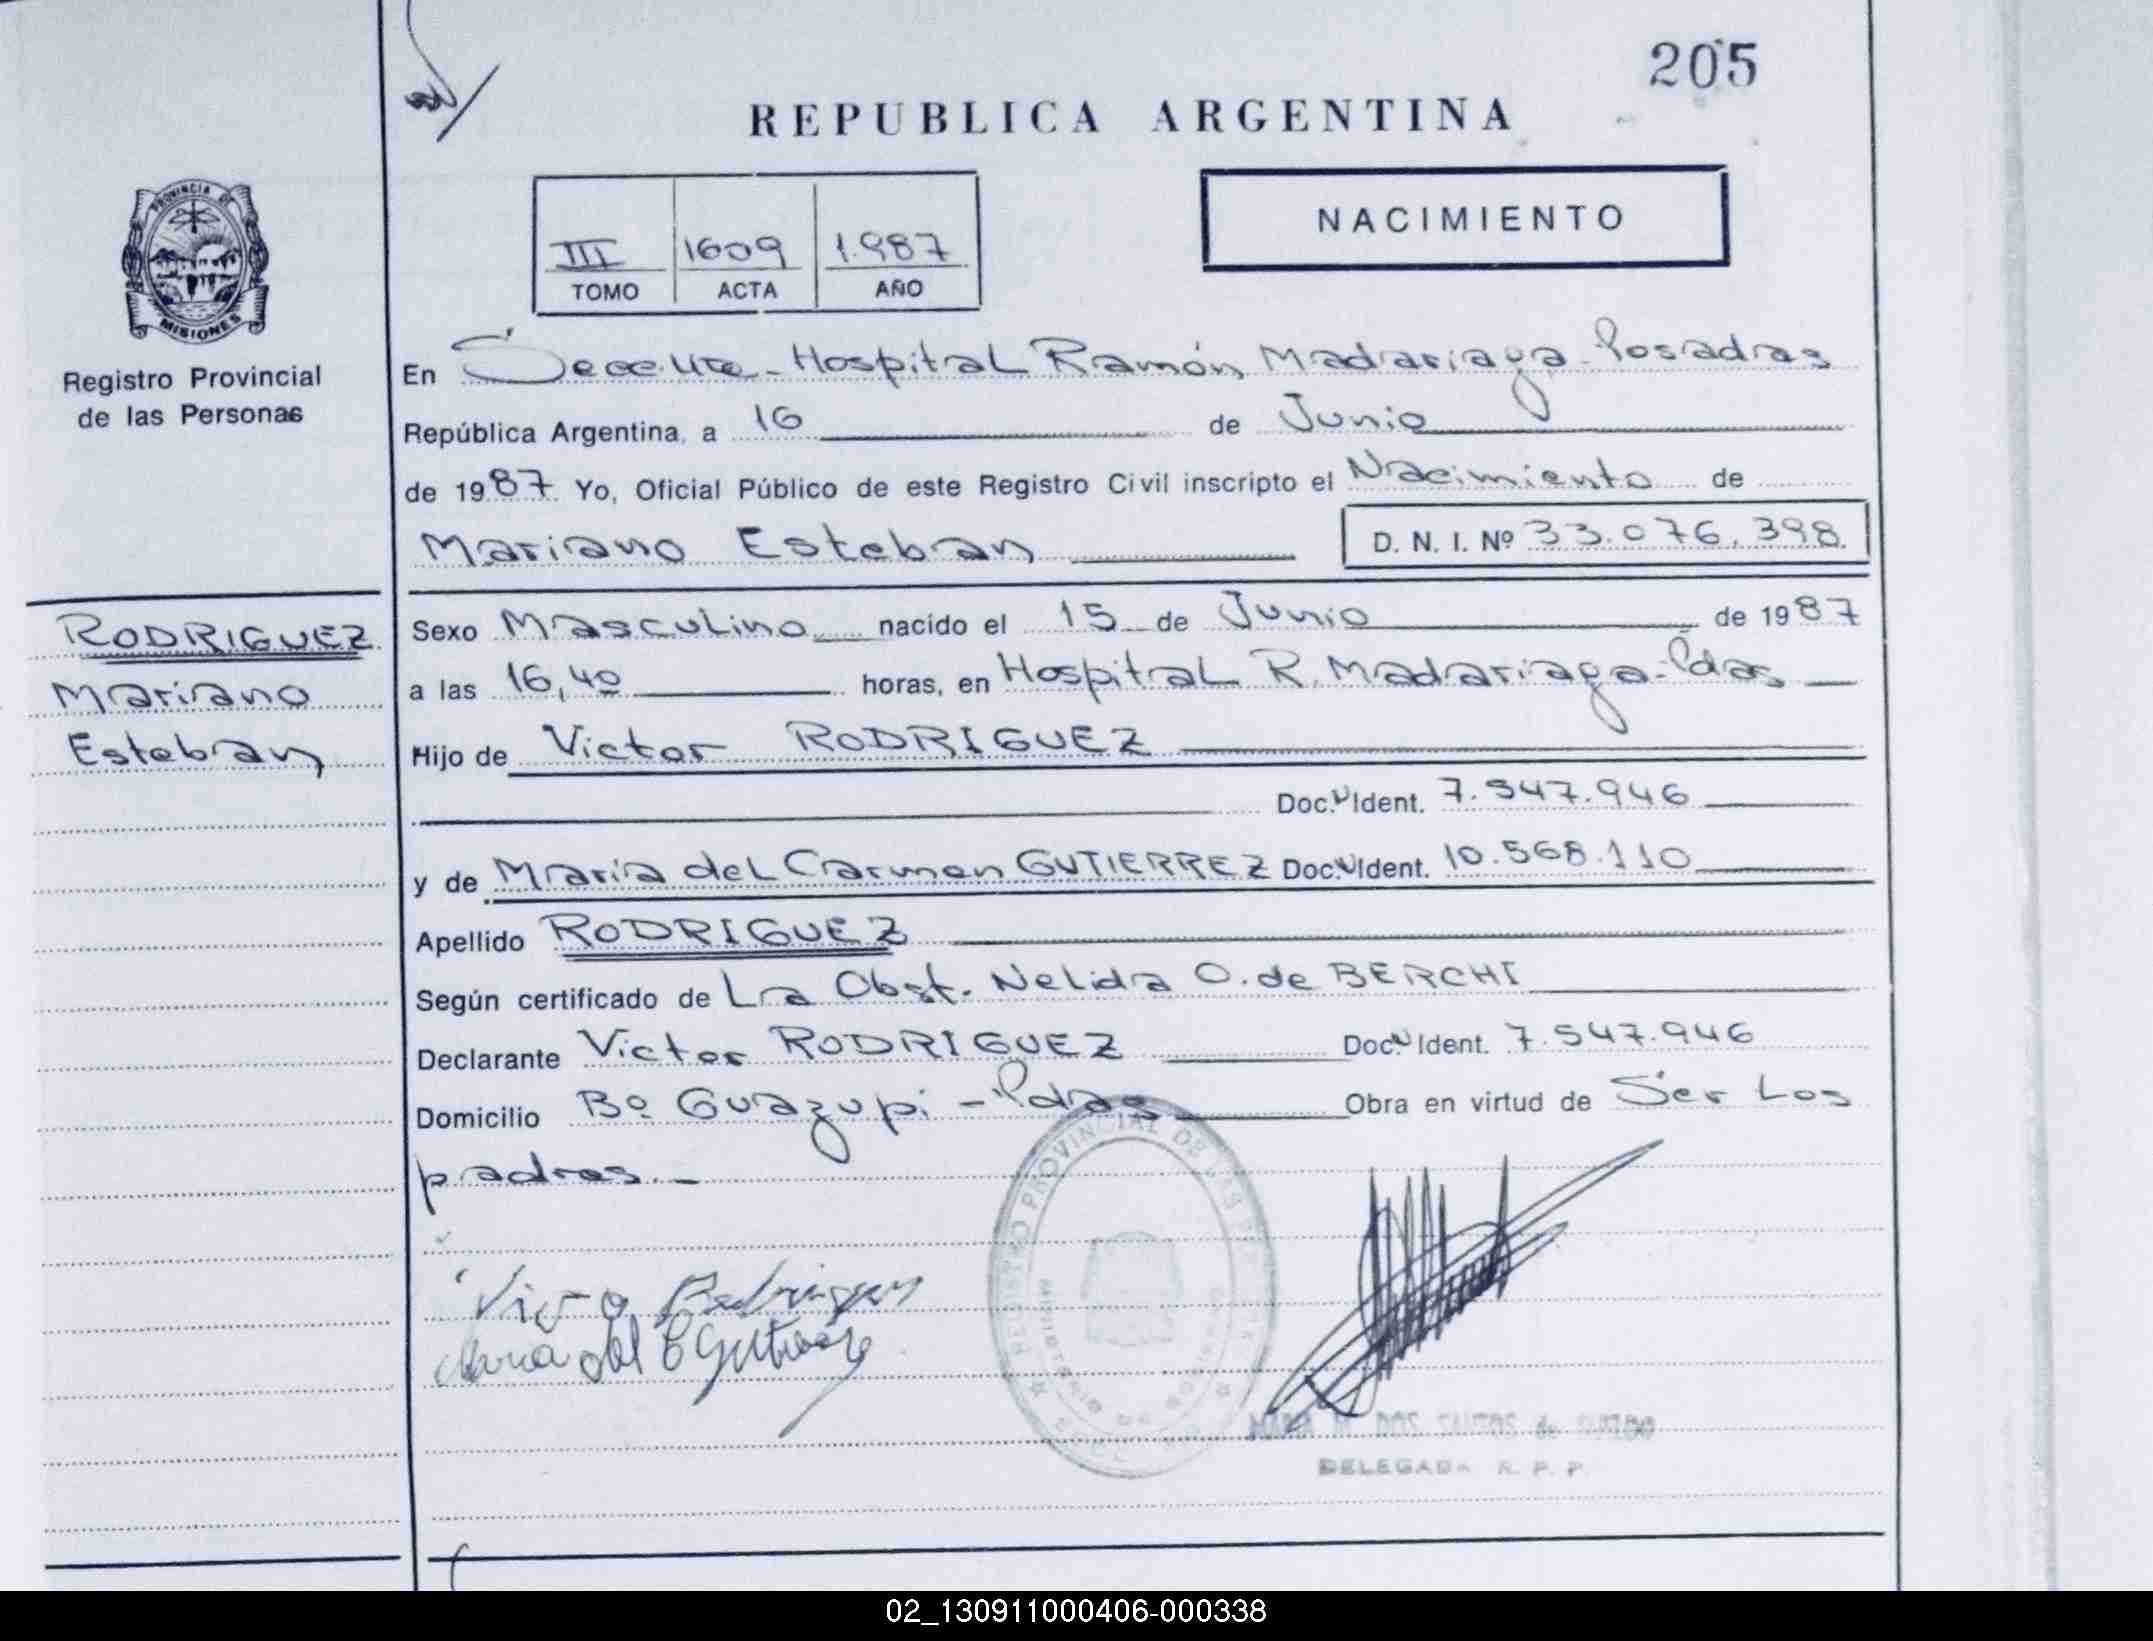 205
REPUBLICA ARGENTINA
PROVINCIA DE
MISIONES
Registro Provincial
de las Personas
III 1609 1.987
TOMO ACTA AÑO
NACIMIENTO
En Hospital Ramón Madariaga - Posadas
República Argentina, a 16 de Junio
de 1987 Yo, Oficial Público de este Registro Civil inscripto el Nacimiento de
Mariano Esteban D. N. I. Nº 33.076.398
RODRIGUEZ
Mariano
Esteban
Sexo Masculino nacido el 15 de Junio de 1987
a las 16,40 horas, en Hospital R. Madariaga - Pdas
Hijo de Victor RODRIGUEZ
Doc. Ident. 7.547.946
y de María del Carmen GUTIERREZ Doc. Ident. 10.568.110
Apellido RODRIGUEZ
Según certificado de La Obst. Nelida O. de BERCHI
Declarante Victor RODRIGUEZ Doc. Ident. 7.547.946
Domicilio Bº Guazupi - Pdas Obra en virtud de Ser Los
padres. -
REGISTRO PROVINCIAL DE LAS
DOS SANTOS de
DELEGADA R. P. P.
02_130911000406-000338